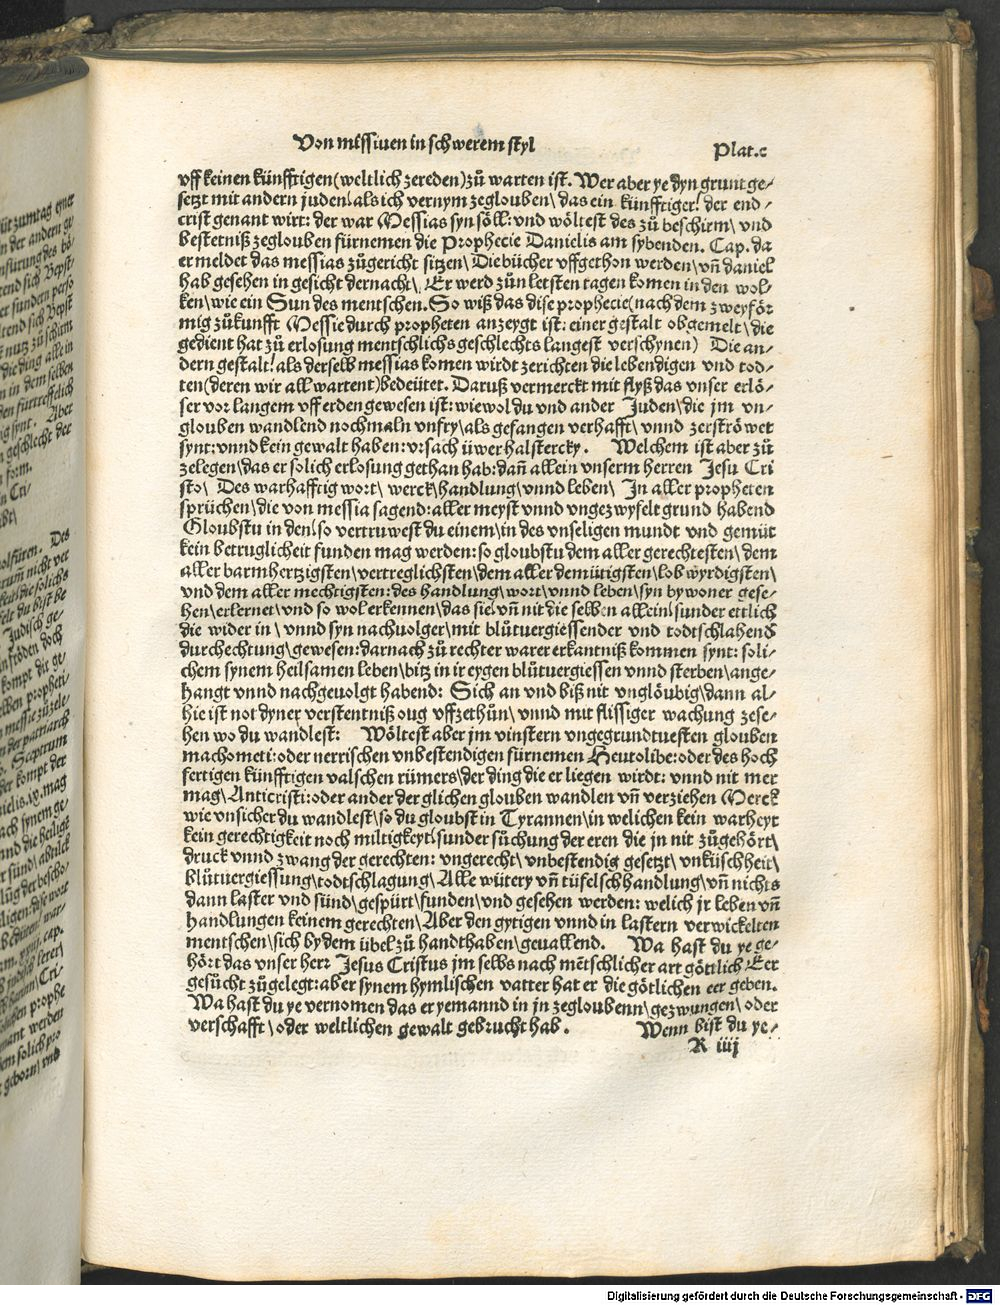 Von missiuen in schwerem styl
Plat.c
vff keinen künfftigen (weltlich zereden) zů warten ist. Wer aber ye dyn grunt ge⸗
setzt mit andern juden\ als ich vernym zeglouben\ das ein künfftiger\ der end⸗
crist genant wirt: der war Messias syn söll: vnd wöltest des zů beschirm\ vnd
bestetniß zeglouben fürnemen die Prophecie Danielis am sybenden. Cap. da
er meldet das messias zůgericht sitzen\ Die bücher vffgethon werden\ vn̄ daniel
hab gesehen in gesicht dernach\ Er werd zůn letsten tagen komen in den wol⸗
ken\ wie ein Sun des mentschen. So wiß das dise prophecie (nach dem zweyför
mig zůkunfft Messie durch propheten anzeygt ist: einer gestalt obgemelt\ die
gedient hat zů erlosung mentschlichs geschlechts langest verschynen) Die an⸗
dern gestalt\ als derselb messias komen wirdt zerichten die lebendigen vnd tod⸗
ten (deren wir all wartent) bedeütet. Daruß vermerckt mit flyß das vnser erlö⸗
ser vor langem vff erden gewesen ist: wiewol du vnd ander Juden\ die jm vn⸗
glouben wandlend nochmaln vnfry\ als gefangen verhafft\ vnnd zerströwet
synt: vnnd kein gewalt haben: vrsach üwer halstercky. Welchem ist aber zů
zelegen\ das er solich erlosung gethan hab: dan̄ allein vnserm herren Jesu Cri
sto\ Des warhafftig wort\ werck\ handlung\ vnnd leben\ In aller propheten
sprüchen\ die von messia sagend: aller meyst vnnd vngezwyfelt grund habend
Gloubstu in den\ so vertruwest du einem\ in des vnseligen mundt vnd gemüt
kein betruglicheit funden mag werden: so gloubstu dem aller gerechtesten\ dem
aller barmhertzigsten\ vertreglichsten\ dem aller demütigsten\ lobwyrdigsten\
vnd dem aller mechtigsten: des handlung\ wort\ vnnd leben\ syn bywoner gese⸗
hen\ erlernet\ vnd so wol erkennen\ das sie\ vn̄ nit die selben allein\ sunder ettlich
die wider in\ vnnd syn nachuolger\ mit blůtuergiessender vnd todtschlahend
durchechtung\ gewesen: darnach zů rechter warer erkantniß kommen synt: soli⸗
chem synem heilsamen leben\ bitz in ir eygen blůtuergiessen vnnd sterben\ ange⸗
hangt vnnd nachgeuolgt habend: Sich an vnd biß nit vnglöubig\ dann al⸗
hie ist not dyner verstentniß oug vffzethůn\ vnnd mit flissiger wachung zese⸗
hen wo du wandlest: Wöltest aber jm vinstern vngegrundtuesten glouben
machometi: oder nerrischen vnbestendigen fürnemen Heutolibe: oder des hoch
fertigen künfftigen valschen rümers\ der ding die er liegen wirdt: vnnd nit mer
mag\ Anticristi: oder ander der glichen glouben wandlen vn̄ verziehen Merck
wie vnsicher du wandlest\ so du gloubst in Tyrannen\ in welichen kein warheyt
kein gerechtigkeit noch miltigkeyt\ sunder sůchung der eren die jn nit zůgehört\
druck vnnd zwang der gerechten: vngerecht\ vnbestendig gesetzt\ vnküschheit\
blůtuergiessung\ todtschlagung\ Alle wütery vn̄ tüfelsch handlung\ vn̄ nichts
dann laster vnd sünd\ gespürt\ funden\ vnd gesehen werden: welich jr leben vn̄
handlungen keinem gerechten\ Aber den gytigen vnnd in lastern verwickelten
mentschen\ sich by dem übel zů handthaben\ geuallend. Wa hast du ye ge⸗
hört das vnser herr Jesus Cristus jm selbs nach mētschlicher art göttlich Eer
gesůcht zůgelegt: aber synem hymlischen vatter hat er die götlichen eer geben.
Wa hast du ye vernomen das er yemannd in jn zegloubenn\ gezwungen\ oder
verschafft\ oder weltlichen gewalt gebrucht hab. Wenn bist du ye⸗
R iiij
Digitalisierung gefördert durch die Deutsche Forschungsgemeinschaft - DFG